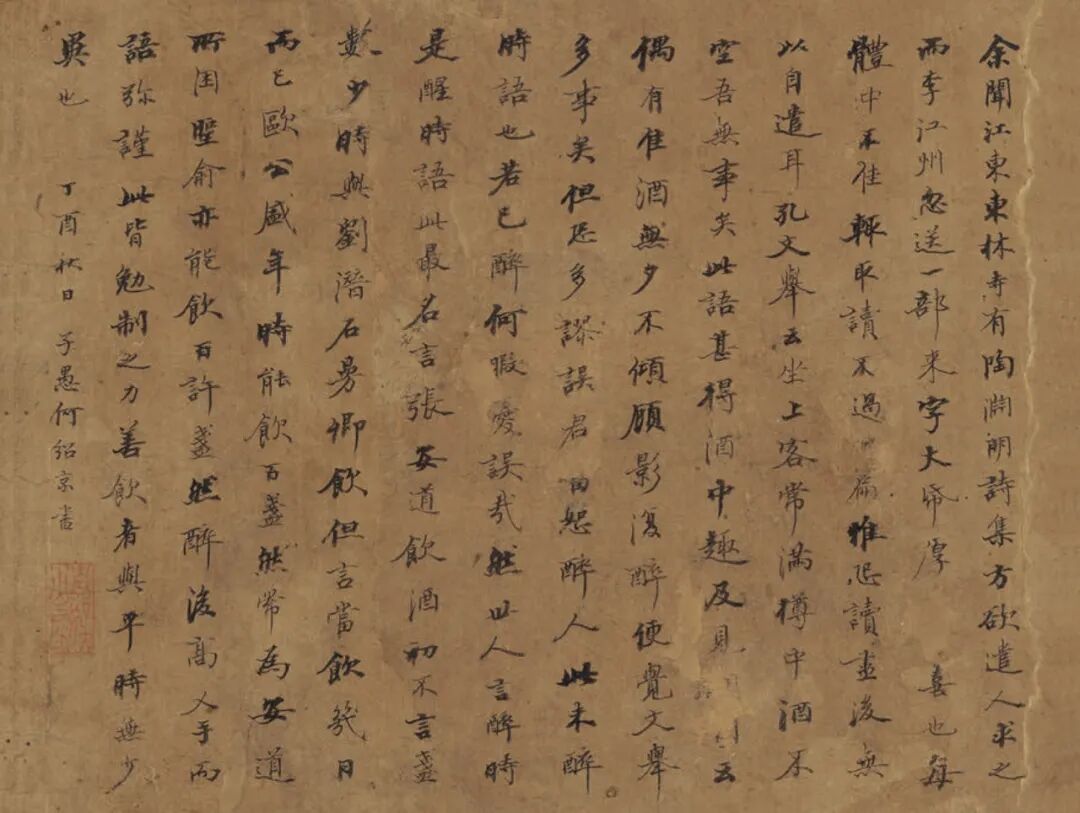 余聞江東東林寺有陶淵明詩集方欲遣人求之
而李江州忽送一部来字大帋厚喜也每
體中不佳輒取讀不過篇惟恐讀盡後無
以自遣耳孔文舉云坐上客常滿樽中酒不
空吾無事矣此語甚得酒中趣及見云
偶有佳酒無夕不傾顧影復醉便覺文舉
多事矣但恐多謬誤君當恕醉人此未醉
時語也若已醉何暇憂誤哉然世人言醉時
是醒時語此最名言張安道飲酒初不言盞
數少時與劉潛石曼卿飲但言當飲幾日
而已歐公盛年時能飲百盞然常為安道
所困聖俞亦能飲百許盞然醉後高叉手而
語弥謹此皆勉制之力善飲者與平時無少
異也
丁酉秋日 子愚何紹京書